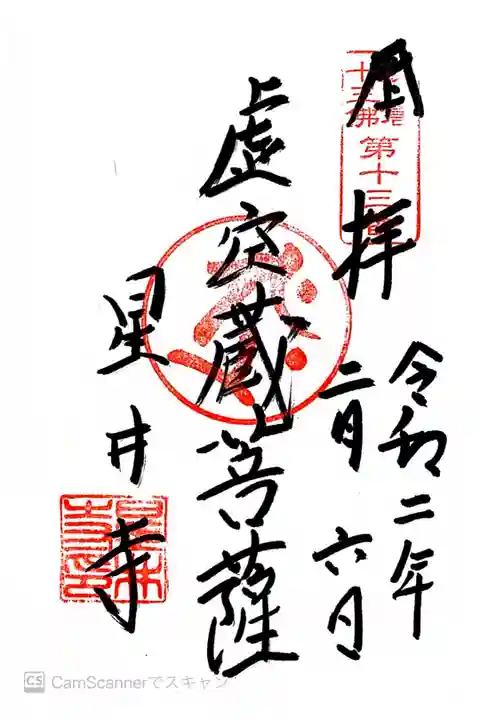 奉拝
令和二年
二月六日
虚空蔵菩薩
星井寺
十三佛
第十三番
CS CamScannerでスキャン